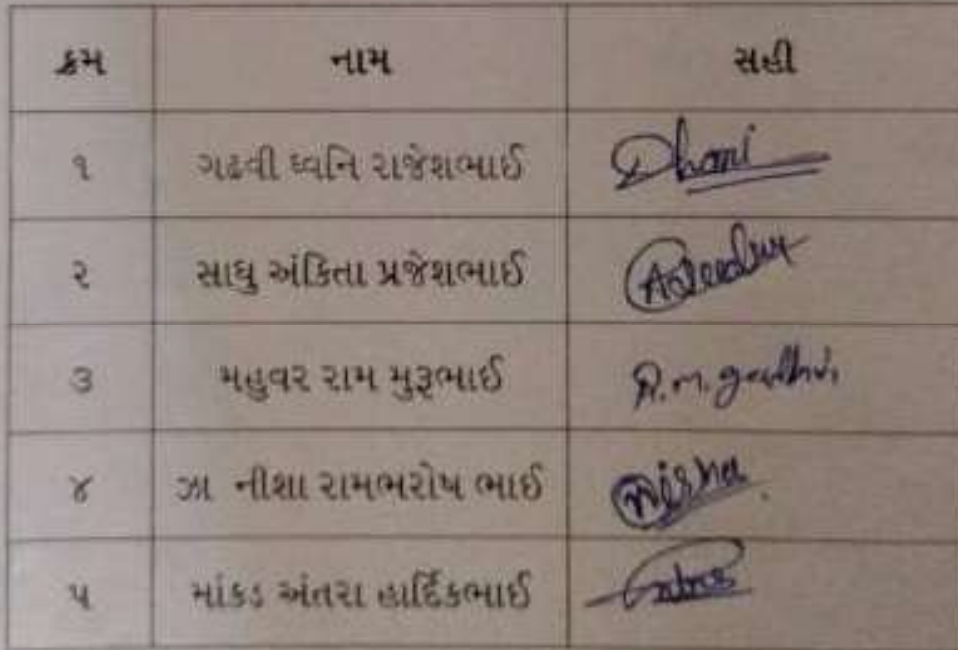 ક્રમ નામ સહી
૧ ગઢવી ધ્વનિ રાજેશભાઈ Dhani
૨ સાધુ અંકિતા પ્રજેશભાઈ
૩ મહુવર રામ મુરૂભાઈ R.m. gadhvi
૪ ઝા નીશા રામભરોષ ભાઈ Nisha
૫ માંકડ અંતરા હાર્દિકભાઈ